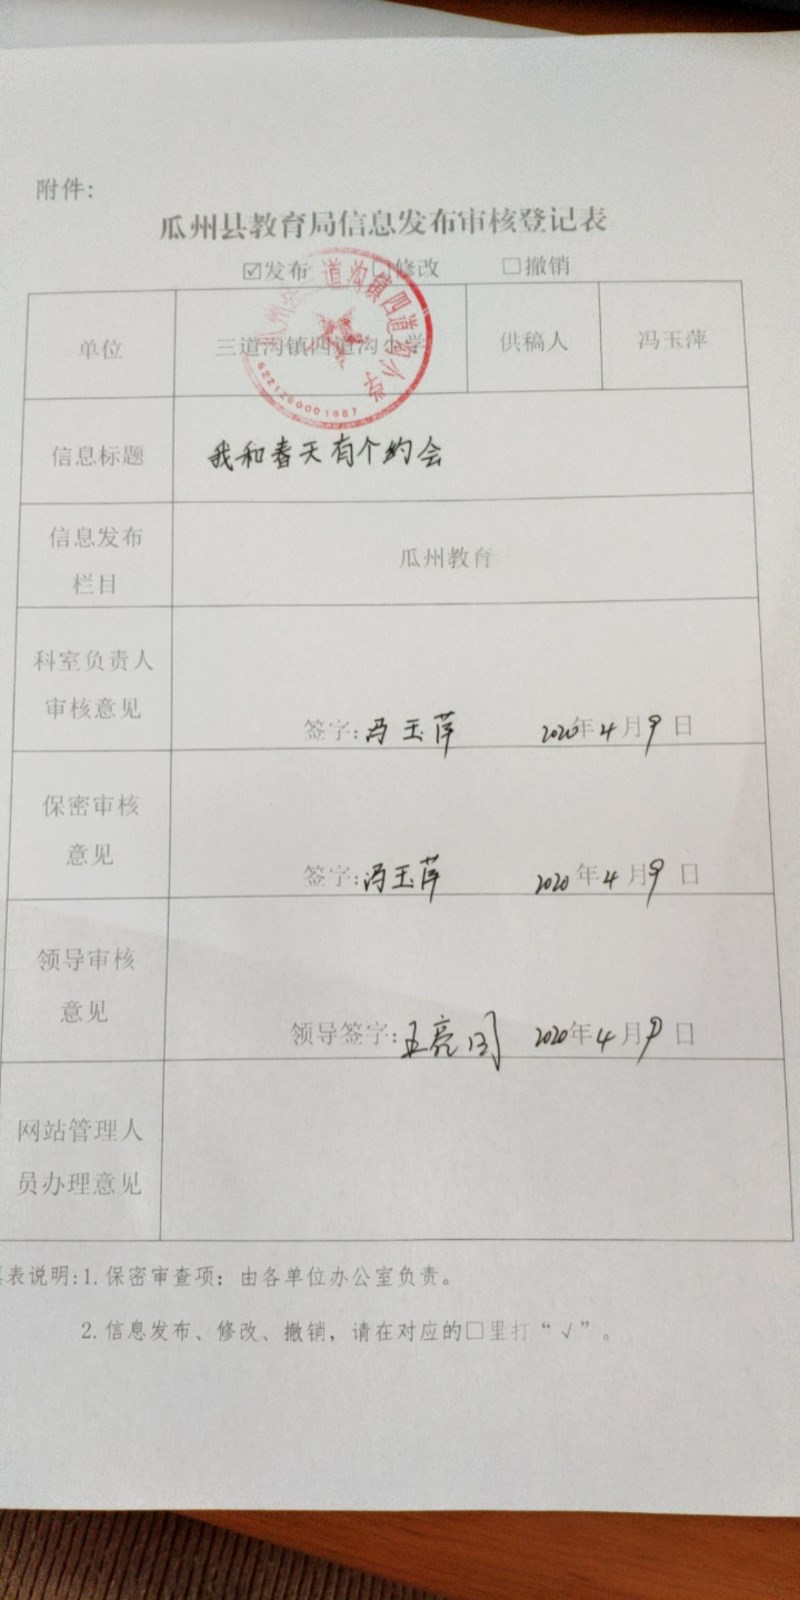 附件:
瓜州县教育局信息发布审核登记表
☑发布 □修改 □撤销
单位 三道沟镇四道沟小学 供稿人 冯玉萍
道沟镇四道沟小学
6221260001687
信息标题 我和春天有个约会
信息发布
栏目
瓜州教育
科室负责人
审核意见
签字:冯玉萍 2020年4月9日
保密审核
意见
签字:冯玉萍 2020年4月9日
领导审核
意见
领导签字: 2020年4月9日
网站管理人
员办理意见
表说明:1.保密审查项：由各单位办公室负责。
2.信息发布、修改、撤销，请在对应的□里打“√”。